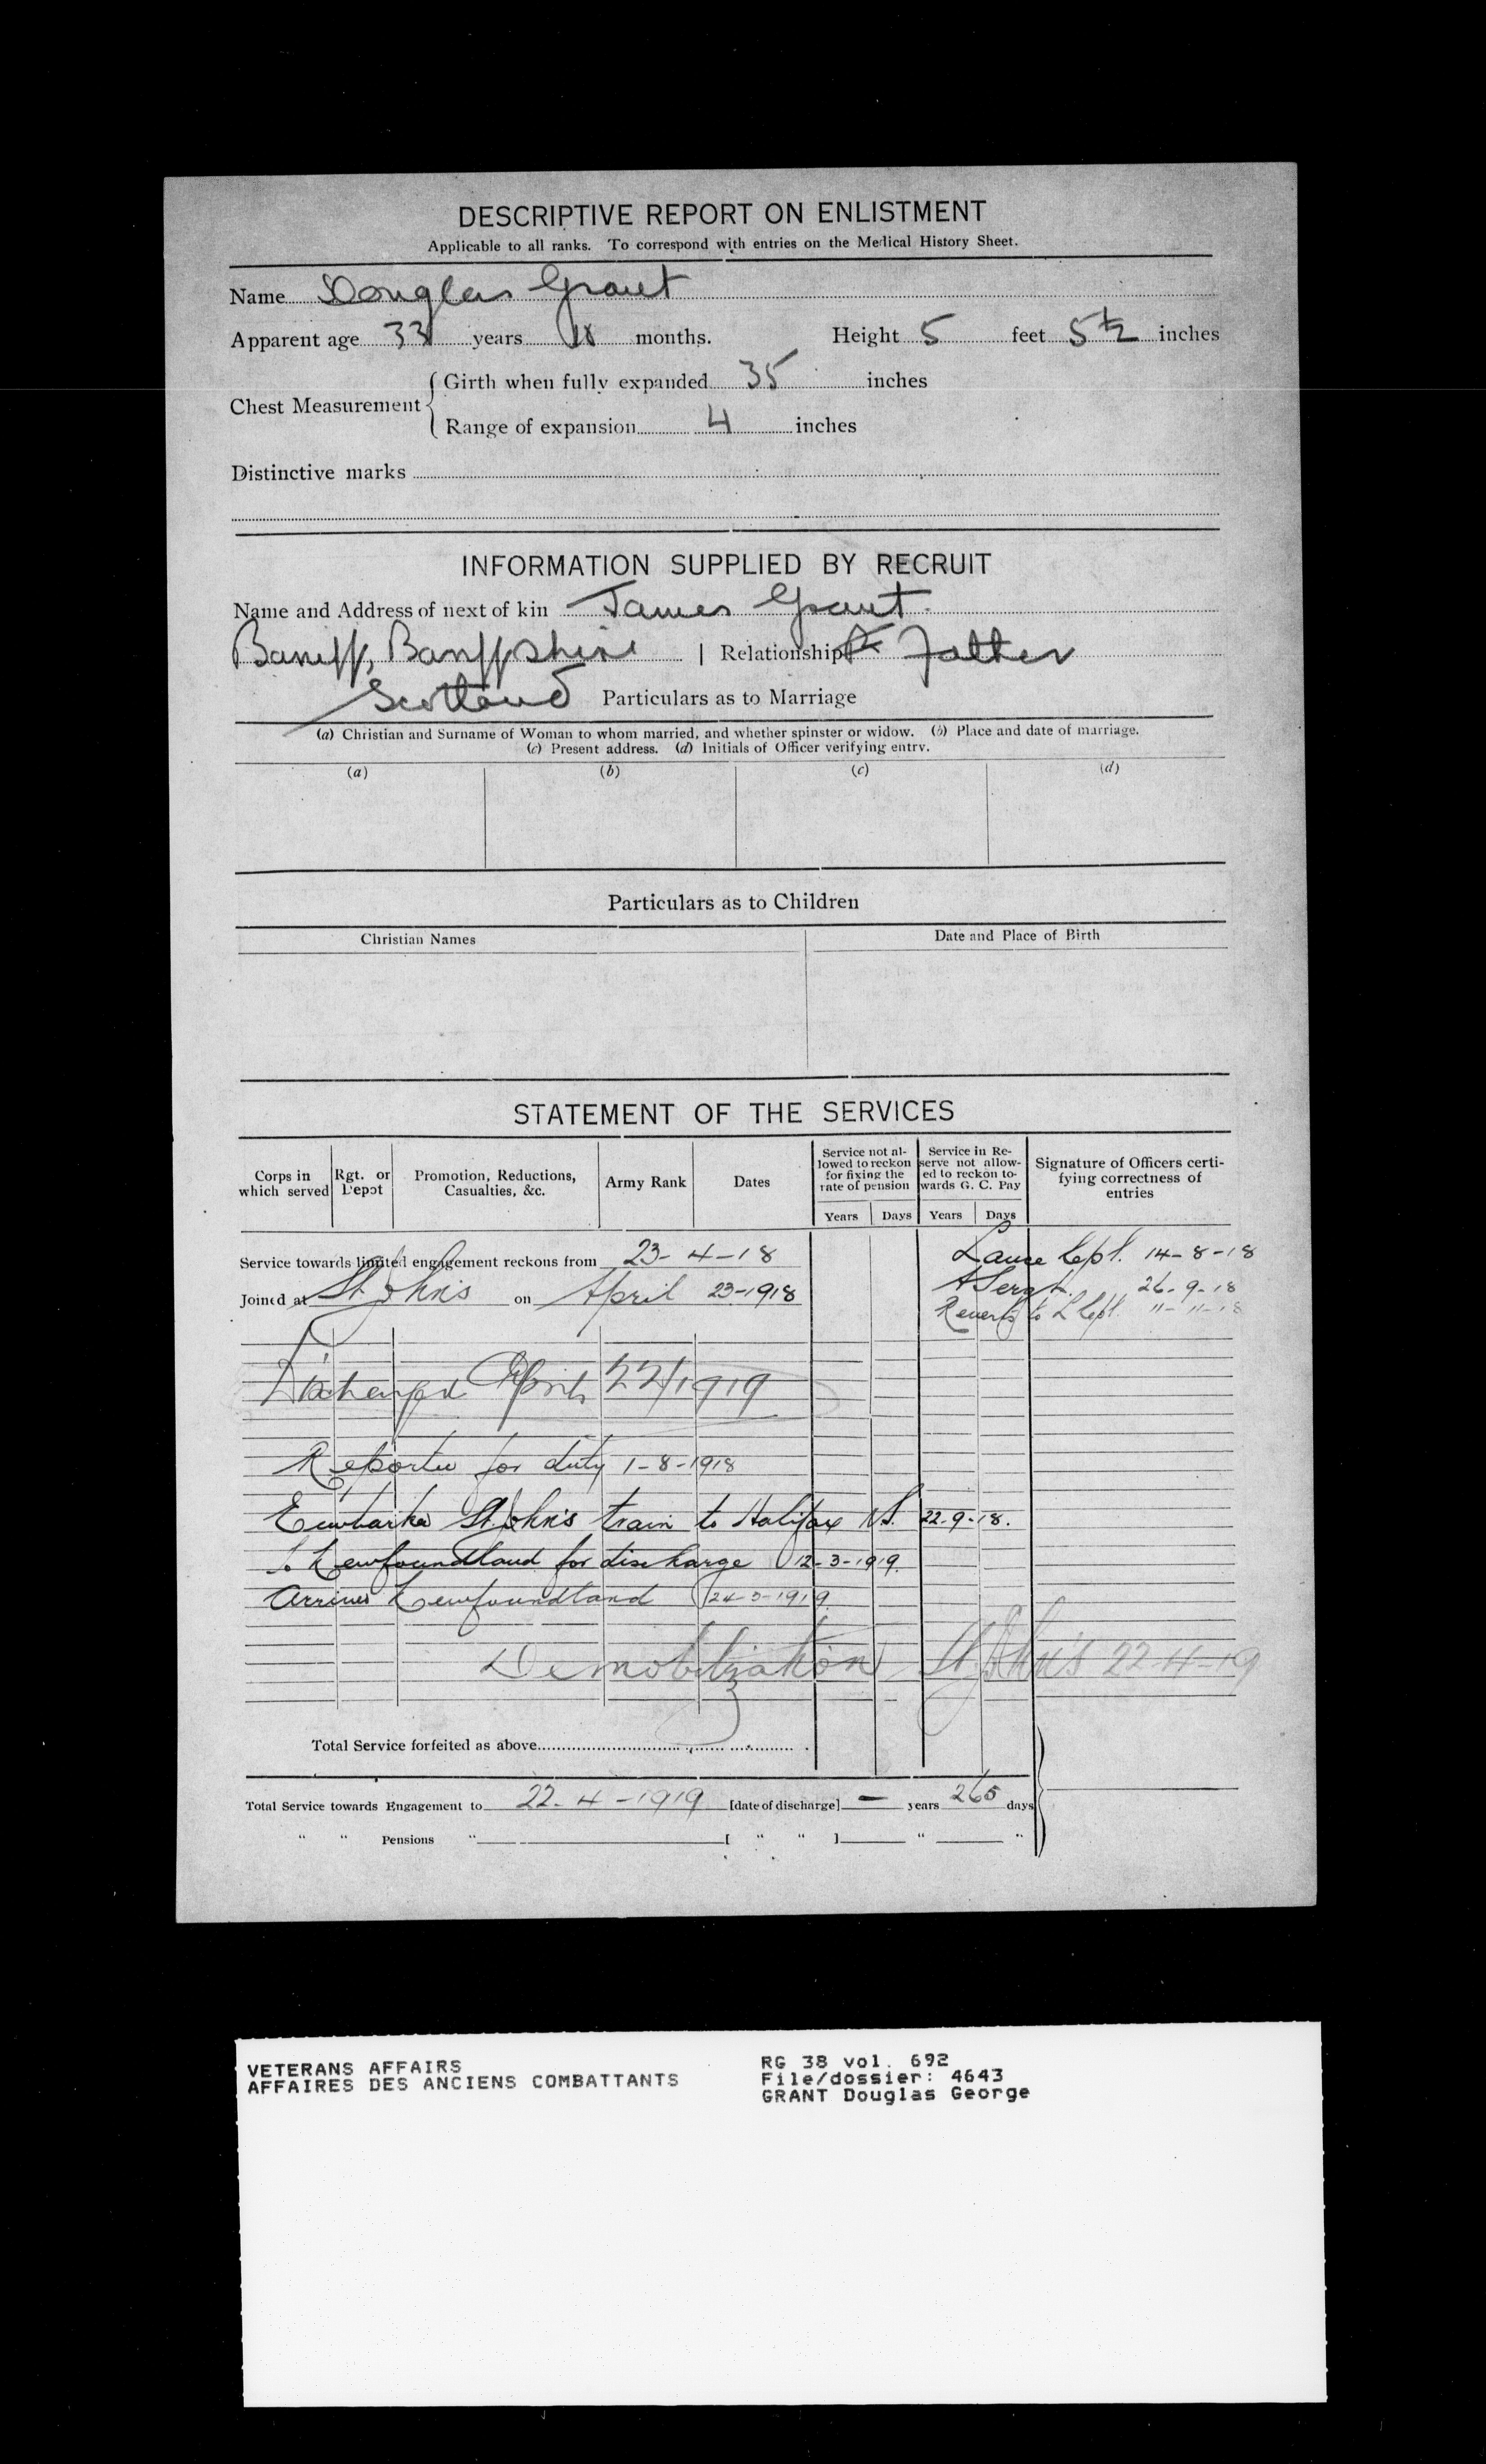 DESCRIPTIVE REPORT ON ENLISTMENT
Applicable to all ranks. To correspond with entries on the Medical History Sheet.
Name Douglas Grant
Apparent age 33 years months. Height 5 feet 5½ inches
Chest Measurement { Girth when fully expanded 35 inches
Range of expansion 4 inches
Distinctive marks
INFORMATION SUPPLIED BY RECRUIT
Name and Address of next of kin James Grant.
Banff, Banffshire | Relationship Father
Scotland Particulars as to Marriage
(a) Christian and Surname of Woman to whom married, and whether spinster or widow. (b) Place and date of marriage.
(c) Present address. (d) Initials of Officer verifying entry.
(a) (b) (c) (d)
Particulars as to Children
Christian Names Date and Place of Birth
STATEMENT OF THE SERVICES
Corps in which served Rgt. or Depot Promotion, Reductions, Casualties, &c. Army Rank Dates Service not allowed to reckon for fixing the rate of pension Service in Reserve not allowed to reckon towards G. C. Pay Signature of Officers certifying correctness of entries
Years Days Years Days
Service towards limited engagement reckons from 23-4-18 Lance Cpl. 14-8-18
Joined at St. John's on April 23-1918 A Sergt. 26-9-18
Reverts to L Cpl. 11-11-18
Discharged April 22/1919
Reported for duty 1-8-1918
Embarked St. John's train to Halifax N.S. 22-9-18.
To Newfoundland for discharge 12-3-1919.
Arrived Newfoundland 24-3-1919.
Demobilization St. John's 22-4-19
Total Service forfeited as above
Total Service towards Engagement to 22-4-1919 [date of discharge] — years 265 days
" " Pensions " [ " " ] " "
VETERANS AFFAIRS
AFFAIRES DES ANCIENS COMBATTANTS
RG 38 vol. 692
File/dossier: 4643
GRANT Douglas George